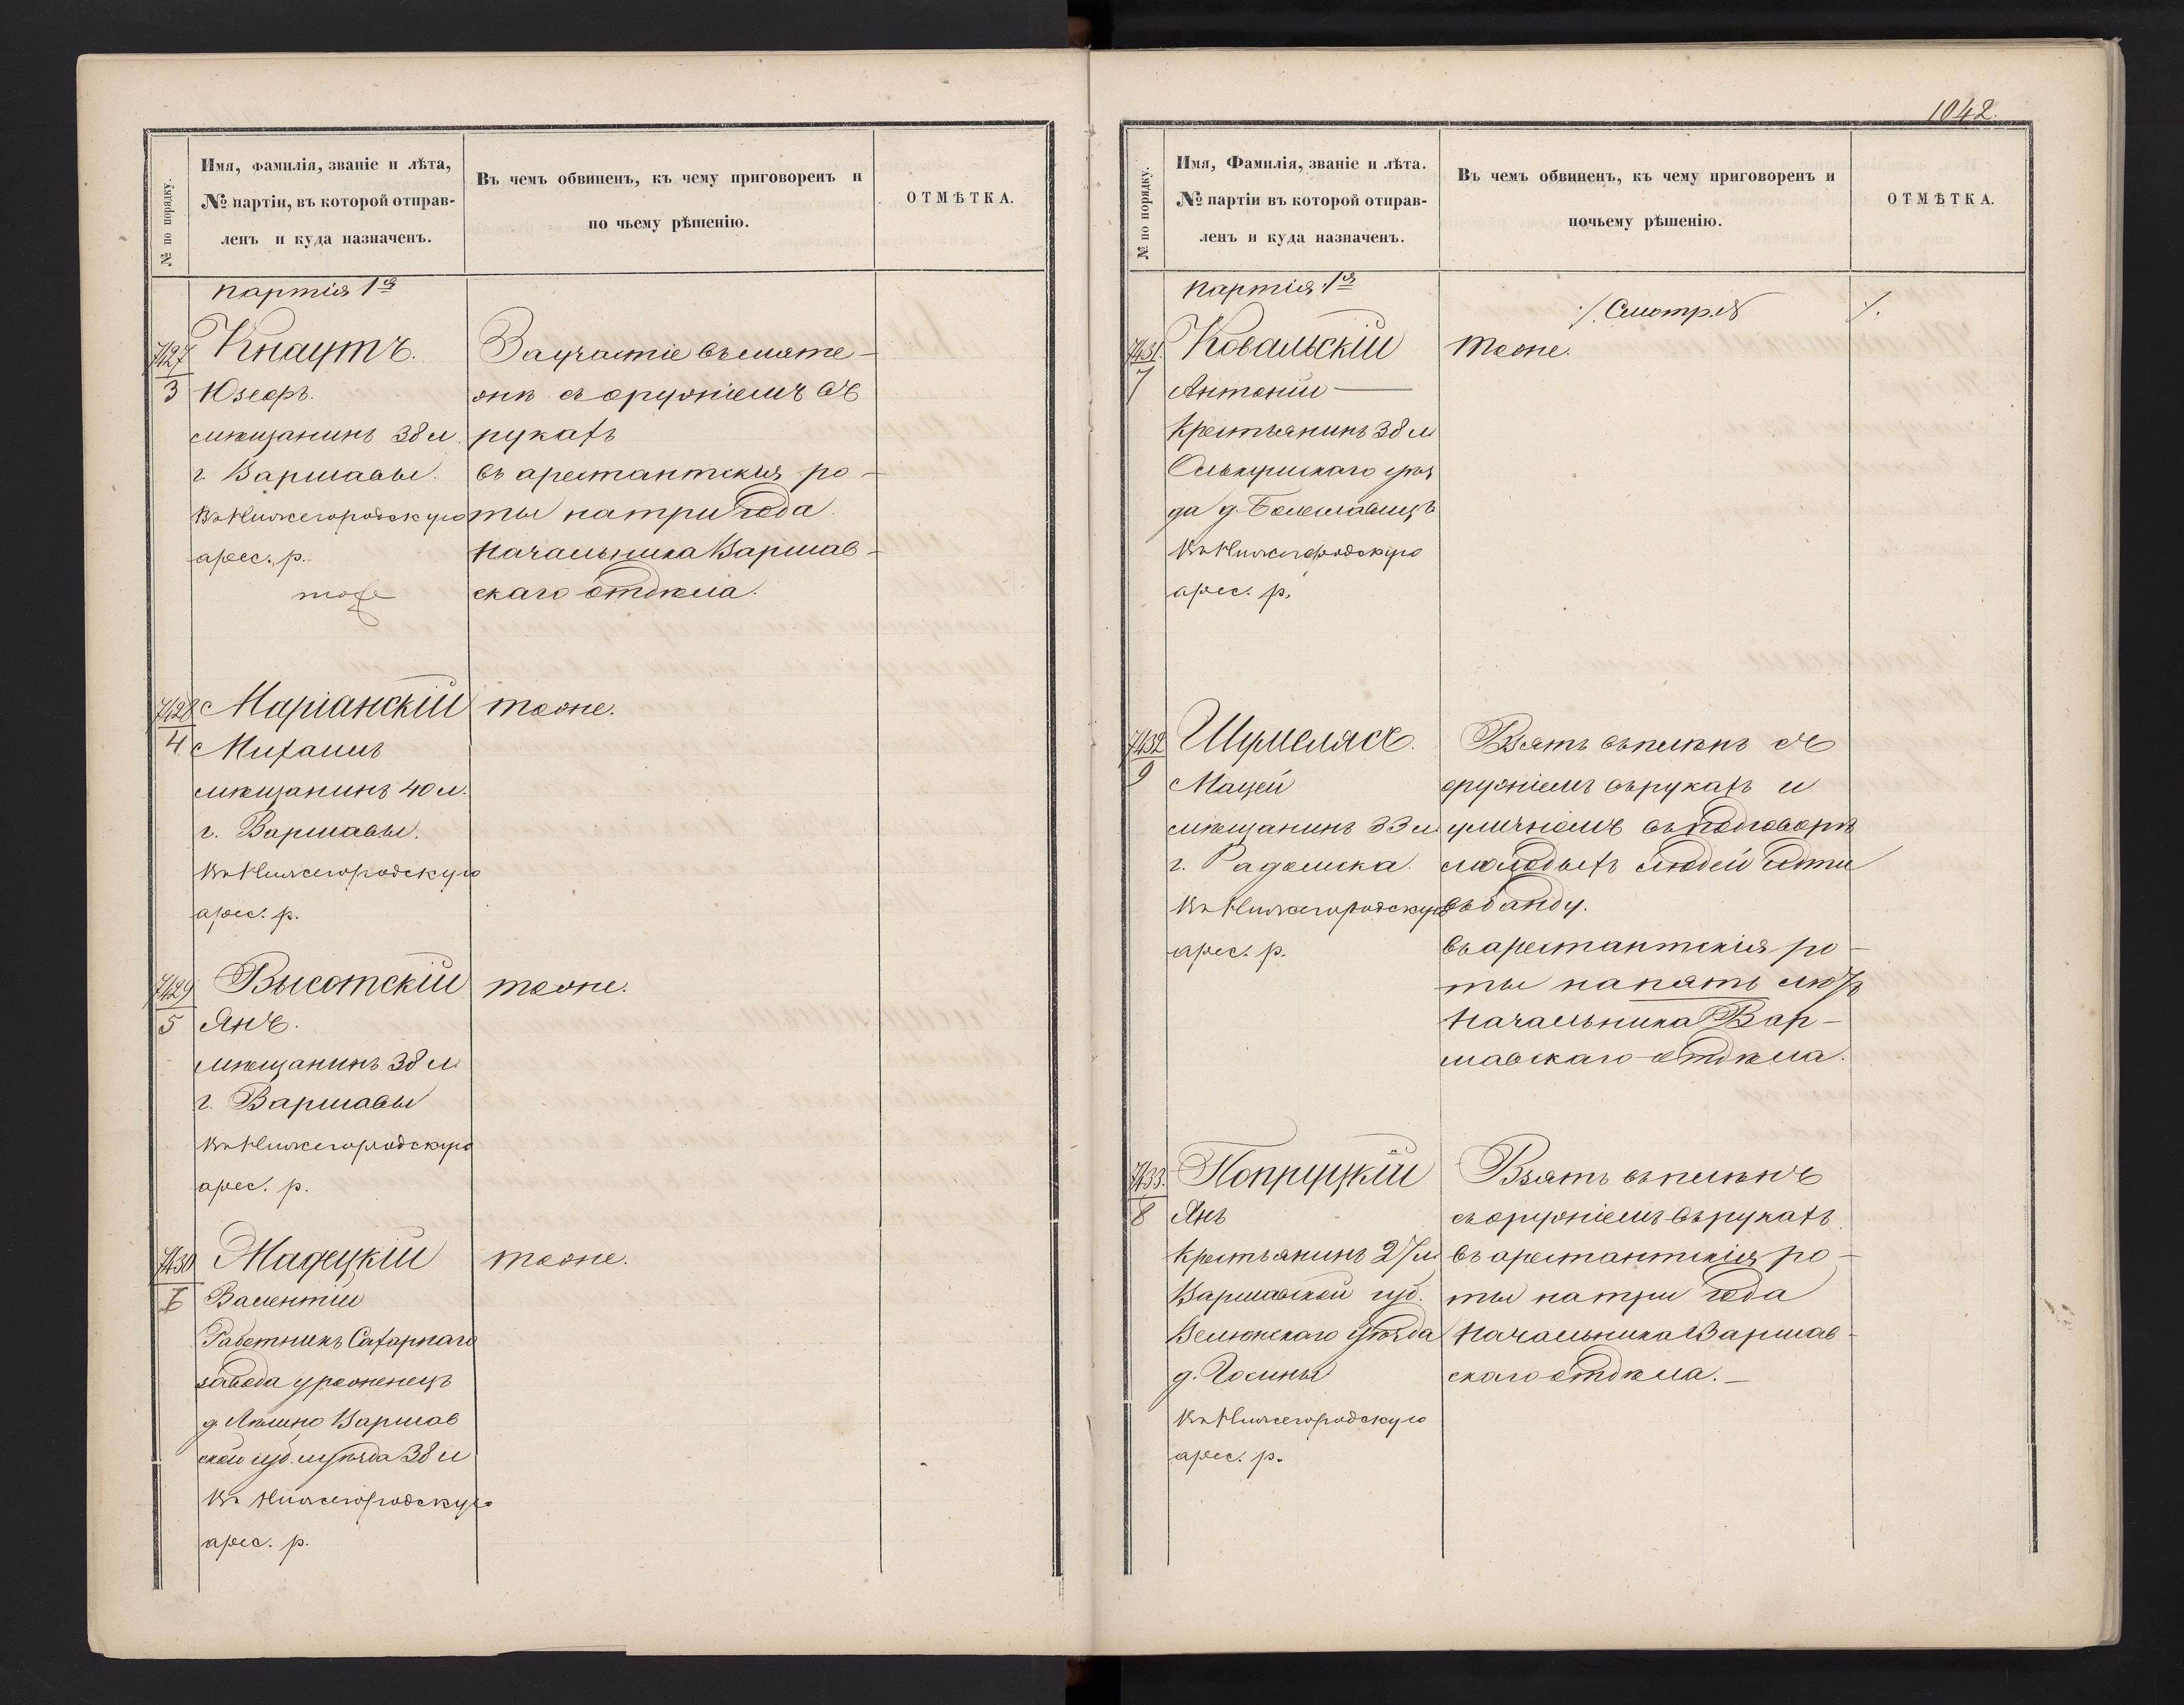 № по порядку.
Имя, фамилія, званіе и лѣта,
№ партіи, въ которой отправ-
ленъ и куда назначенъ.
Въ чемъ обвиненъ, къ чему приговоренъ и
по чьему рѣшенію.
ОТМѢТКА.
партія 1я
7427
3
Кнаутъ.
Юзефъ.
мѣщанинъ 38 л.
г. Варшавы.
Въ Нижегородскую
арес. р.
тоже
За участіе въ мяте-
жѣ съ оружіемъ въ
рукахъ
въ арестантскія ро-
ты на три года.
Начальника Варшав-
скаго отдѣла.
7428
4
Маріанскій
Михаилъ
мѣщанинъ 40 л.
г. Варшавы.
Въ Нижегородскую
арес. р.
тоже.
7429
5
Высотскій
Янъ.
мѣщанинъ 38 л
г. Варшавы
Въ Нижегородскую
арес. р.
тоже.
7430
6
Мадецкій
Валентій
Работникъ Сахарнаго
завода уроженецъ
д. Варшав
ской губ. и уѣзда 38 л
Въ Нижегородскую
арес. р.
тоже.
1042.
№ по порядку.
Имя, Фамилія, званіе и лѣта.
№ партіи въ которой отправ-
ленъ и куда назначенъ.
Въ чемъ обвиненъ, къ чему приговоренъ и
почьему рѣшенію.
ОТМѢТКА.
партія 1я
7431.
7
Ковальскій
Антоній
Крестьянинъ 38 л
Олькушскаго уѣз
да д. Болеславецъ
Въ Нижегородскую
арес. р.
./. Смотр. №
./.
тоже.
7432
9
Шумелясъ.
Мацей
мѣщанинъ 33 л
г. Радомска.
Въ Нижегородскую
арес. р.
Взятъ въ плѣнъ съ
оружіемъ въ рукахъ и
уличнёмъ въ подговорѣ
молодыхъ людей идти
въ банду.
въ арестантскія ро-
ты на пять лѣтъ
Начальника Вар-
шавскаго отдѣла.
7433.
8
Попруцкій
Янъ
Крестьянинъ 27 л
Варшавской губ.
Велюнскаго уѣзда
д.
Въ Нижегородскую
арес. р.
Взятъ въ плѣнъ
съ оружіемъ въ рукахъ.
въ арестантскія ро-
ты на три года
Начальника Варшав-
скаго отдѣла.